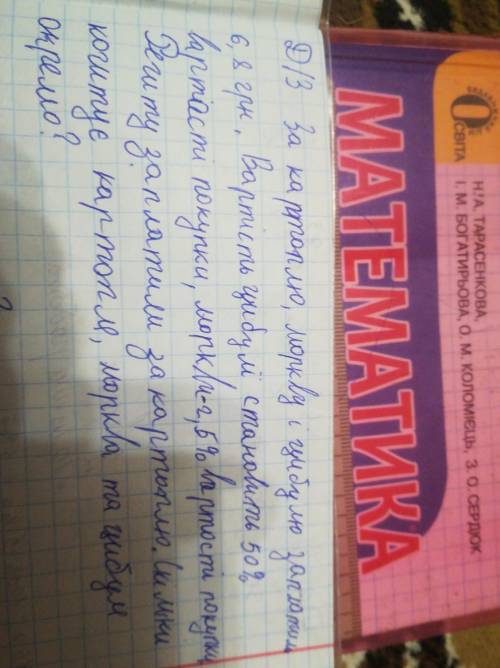 Д/З За картоплю, моркву і цибулю заплатили
6,8 грн. Вартість цибулі становить 50%
вартості покупки, моркви-2,5% вартості покупки
Решту заплатили за картоплю. Скільки
коштує картопля, морква та цибуля
окремо?
ОСВІТА
Н.А. ТАРАСЕНКОВА,
І. М. БОГАТИРЬОВА, О. М. КОЛОМІЄЦЬ, З. О. СЕРДЮК
МАТЕМАТИКА